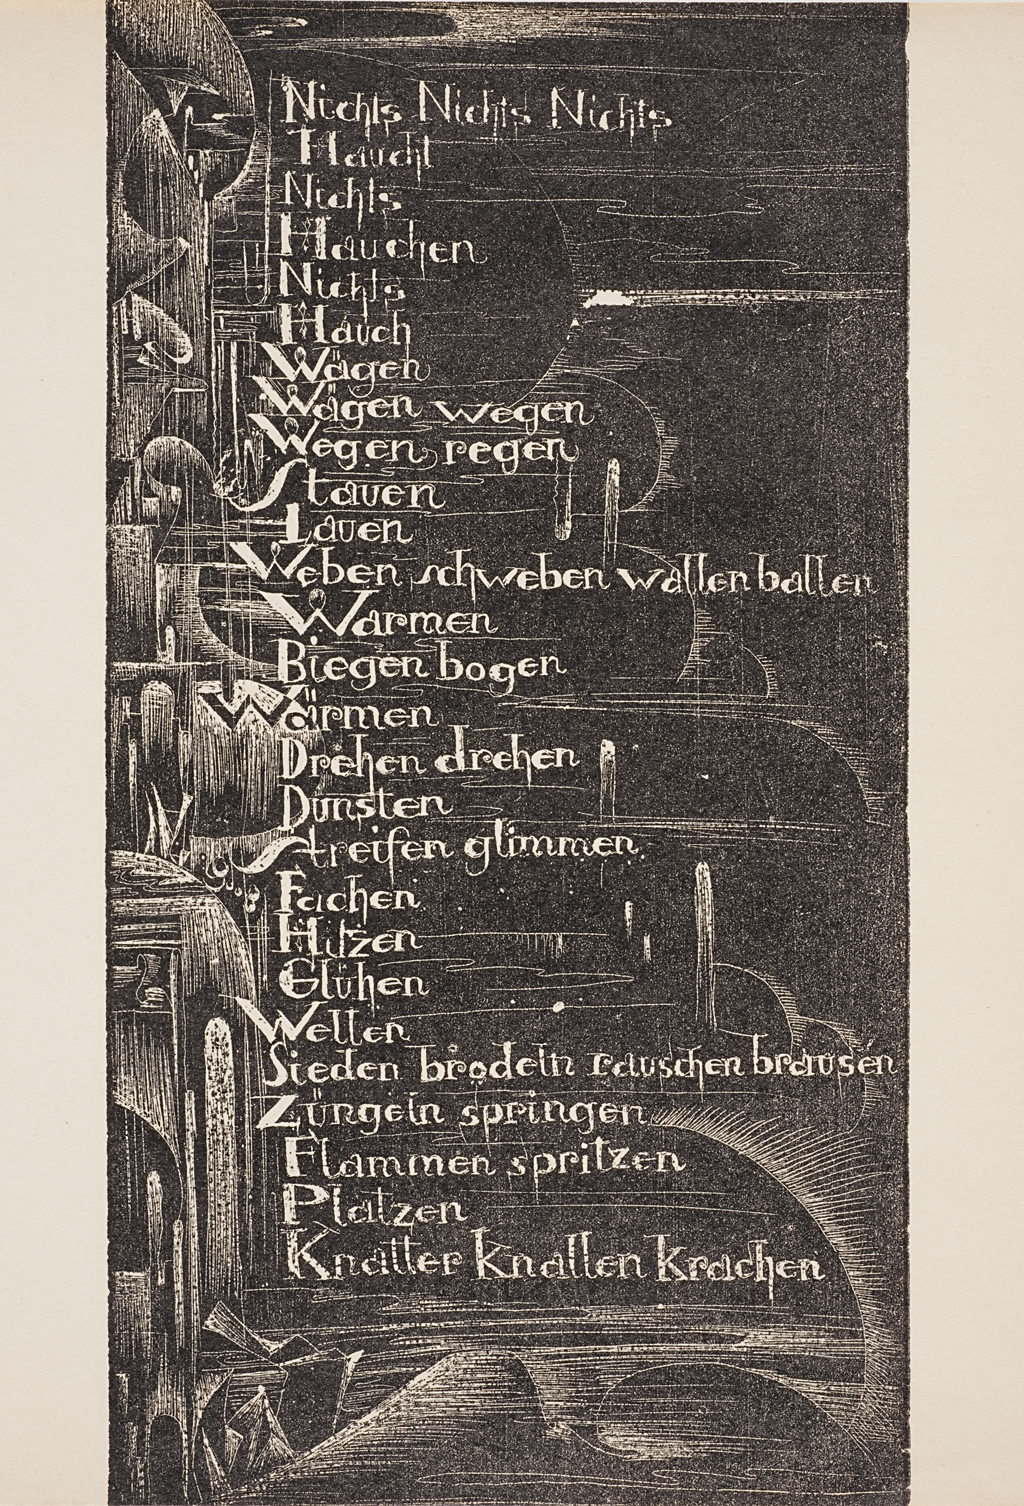 Nichts Nichts Nichts
Haucht
Nichts
Hauchen
Nichts
Hauch
Wägen
Wägen wegen
Wegen regen
Stauen
Lauen
Weben schweben wallen ballen
Warmen
Biegen bogen
Wärmen
Drehen drehen
Dunsten
Streifen glimmen
Fachen
Hitzen
Glühen
Wellen
Sieden brodeln rauschen brausen
Züngeln springen
Flammen spritzen
Platzen
Knatter knallen krachen